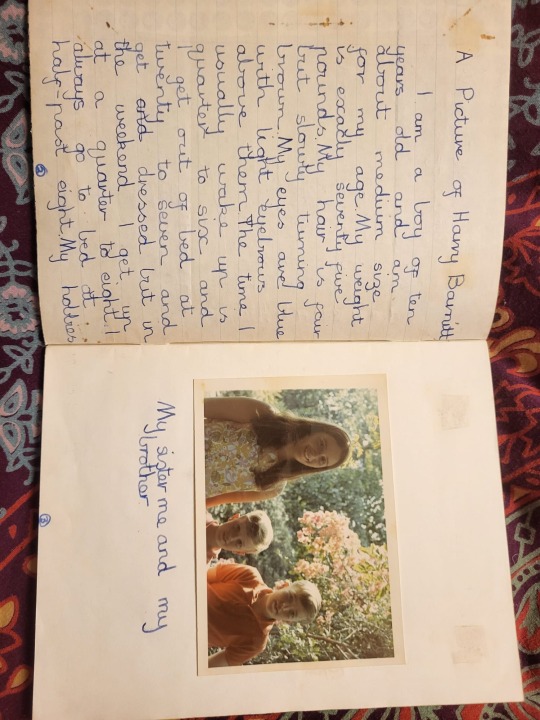 A Picture of Harry Barnitt
I am a boy of ten
years old and am
about medium size
for my age. My weight
is exactly seventy five
pounds. My hair is fair
but slowly turning
brown. My eyes are blue
with light eyebrows
above them. The time I
usually wake up is
quarted to six and
I get out of bed at
twenty to seven and
get dressed but in
the weekend I get up
at a quarter to eight. I
always go to bed at
half-past eight. My hobbies
My sister me and my
brother